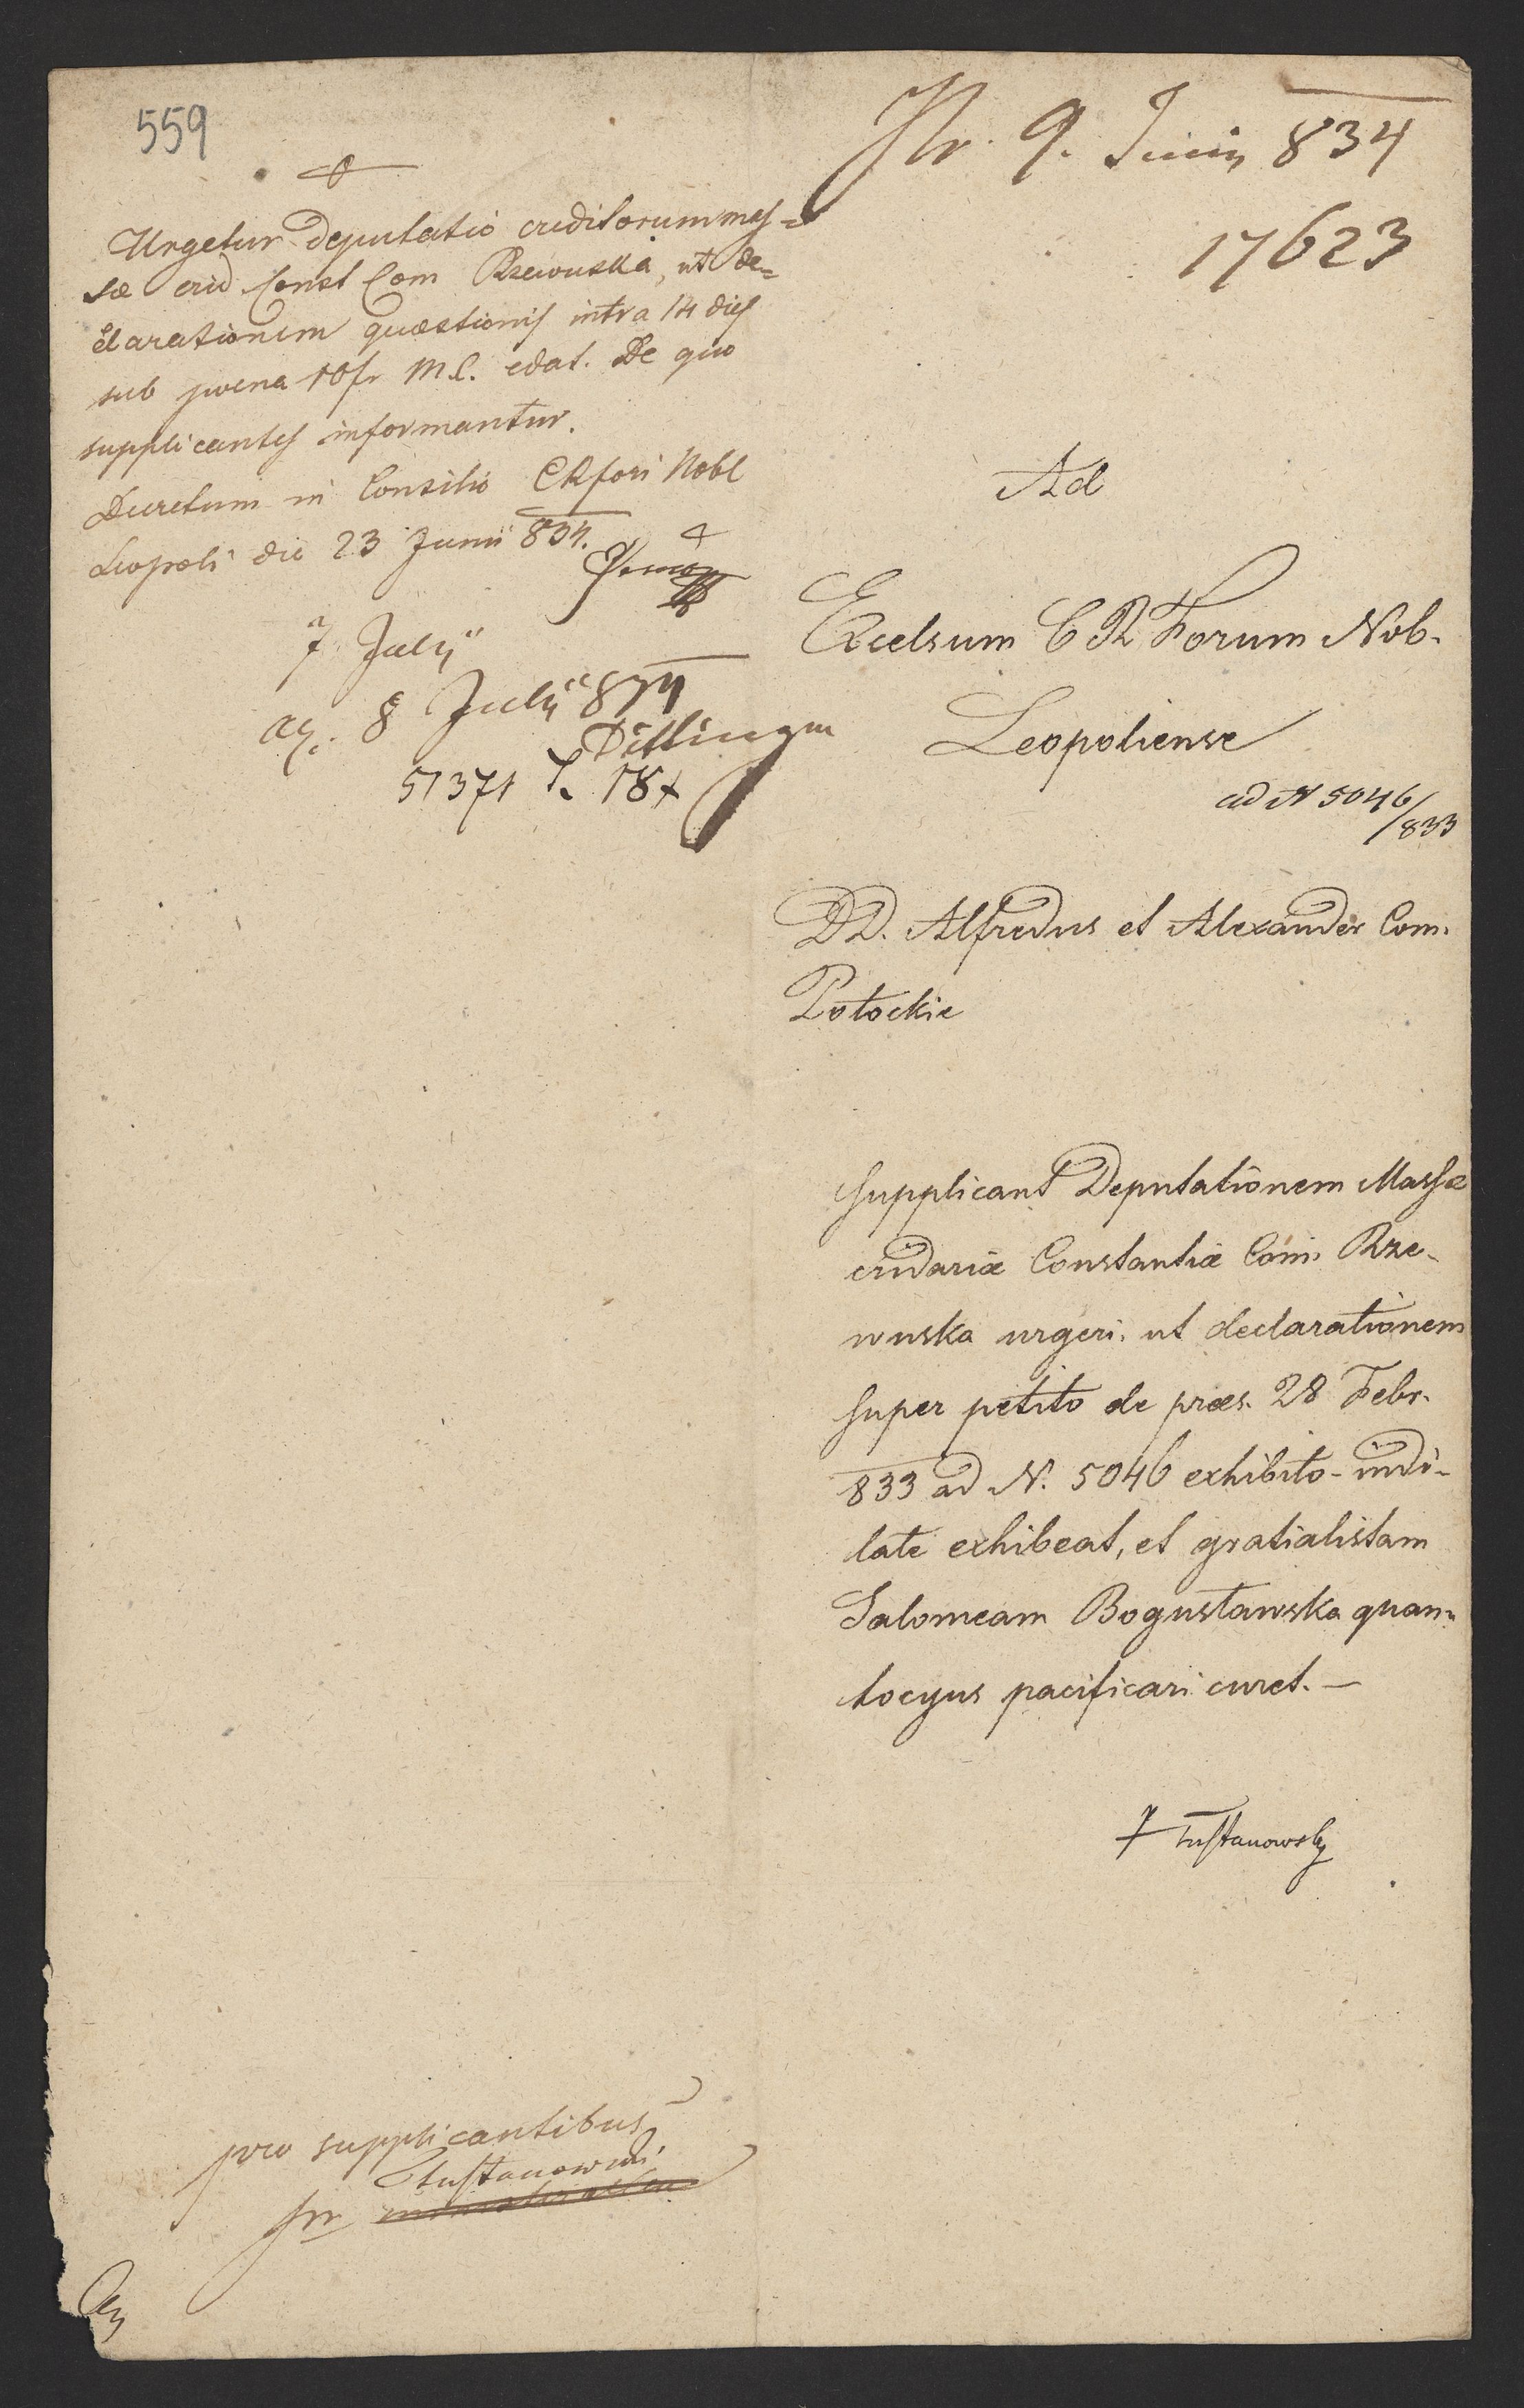 559
Urgetur deputatio creditorum mas=
sæ crid Const Com Rzewuska, ut de=
clarationem quæstionis intra 14 dies
sub poena 10 fr M.C. edat. De quo
supplicantes informantur.
Decretum in Consilio CR fori Nobl
Leopoli die 23 Junii 834.
7 Julÿ
8 Julÿ 834
Dittingm
51371 18x
9. Junÿ 834
17623
Ad
Excelsum C R Forum Nob.
Leopoliense
ad N 5046/833
DD. Alfredus et Alexander Com.
Potockie
Supplicant Deputationem Massæ
cridariæ Constantiæ Com. Rze-
wuska urgeri, ut declarationem
super petito de præs. 28 Febr.
833 ad N. 5046 exhibito indi-
late exhibeat, et gratialistam
Salomeam Bogusławska quan-
tocyus pacificari curet. —
Tustanowsky
pro supplicantibus
Tustanowski